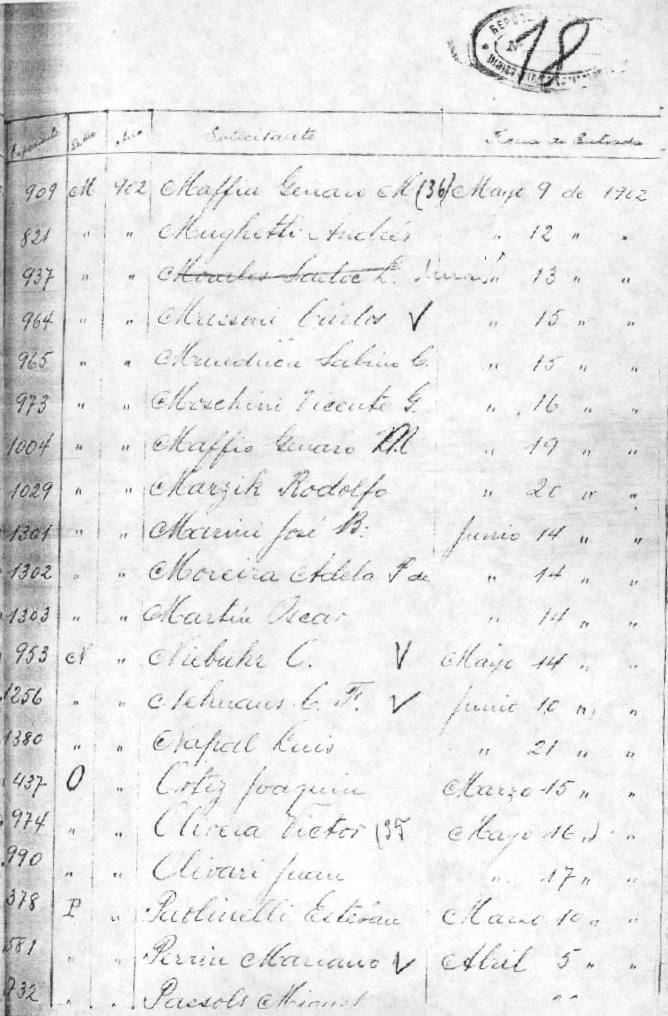 18
Expediente Letra Año Solicitante Fecha de Entrada
909 M 902 Maffia Genaro M (36) Mayo 9 de 1902
821 " " Mughetti Andrés " 12 " "
937 " " " 13 " "
964 " " Carlos V " 15 " "
965 " " Sabino C. " 15 " "
973 " " Moschini Vicente G. " 16 " "
1004 " " Maffio Genaro M " 19 " "
1029 " " Marzik Rodolfo " 20 " "
1301 " " Marini José B. Junio 14 " "
1302 " " Moreira Adela P de " 14 " "
1303 " " Martin Oscar " 14 " "
953 N " Niebuhr C. V Mayo 14 " "
1256 " " C. F. V Junio 10 " "
1380 " " Napal Luis " 21 " "
437 O " Ortiz Joaquin Marzo 15 " "
974 " " Olivera Victor (35 Mayo 16 " "
990 " " Olivari Juan " 17 " "
378 P " Paolinelli Estevan Marzo 10 " "
581 " " Perrin Mariano V Abril 5 " "
732 " " Miguel " "